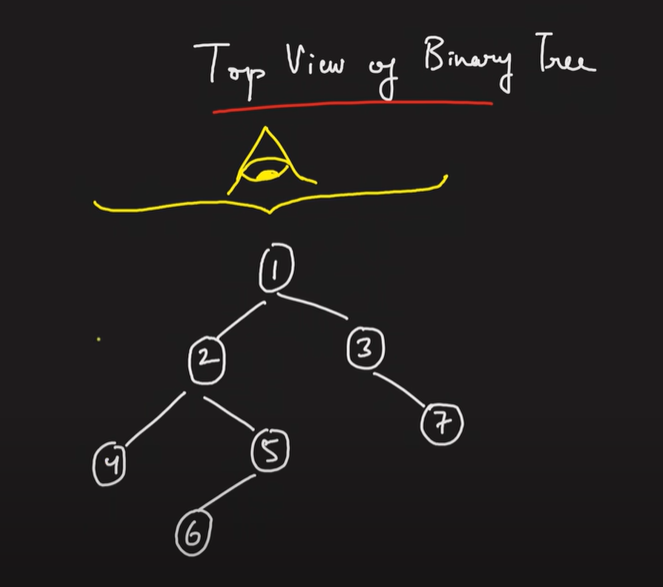 Top View of Binary Tree
1
2
3
4
5
7
6